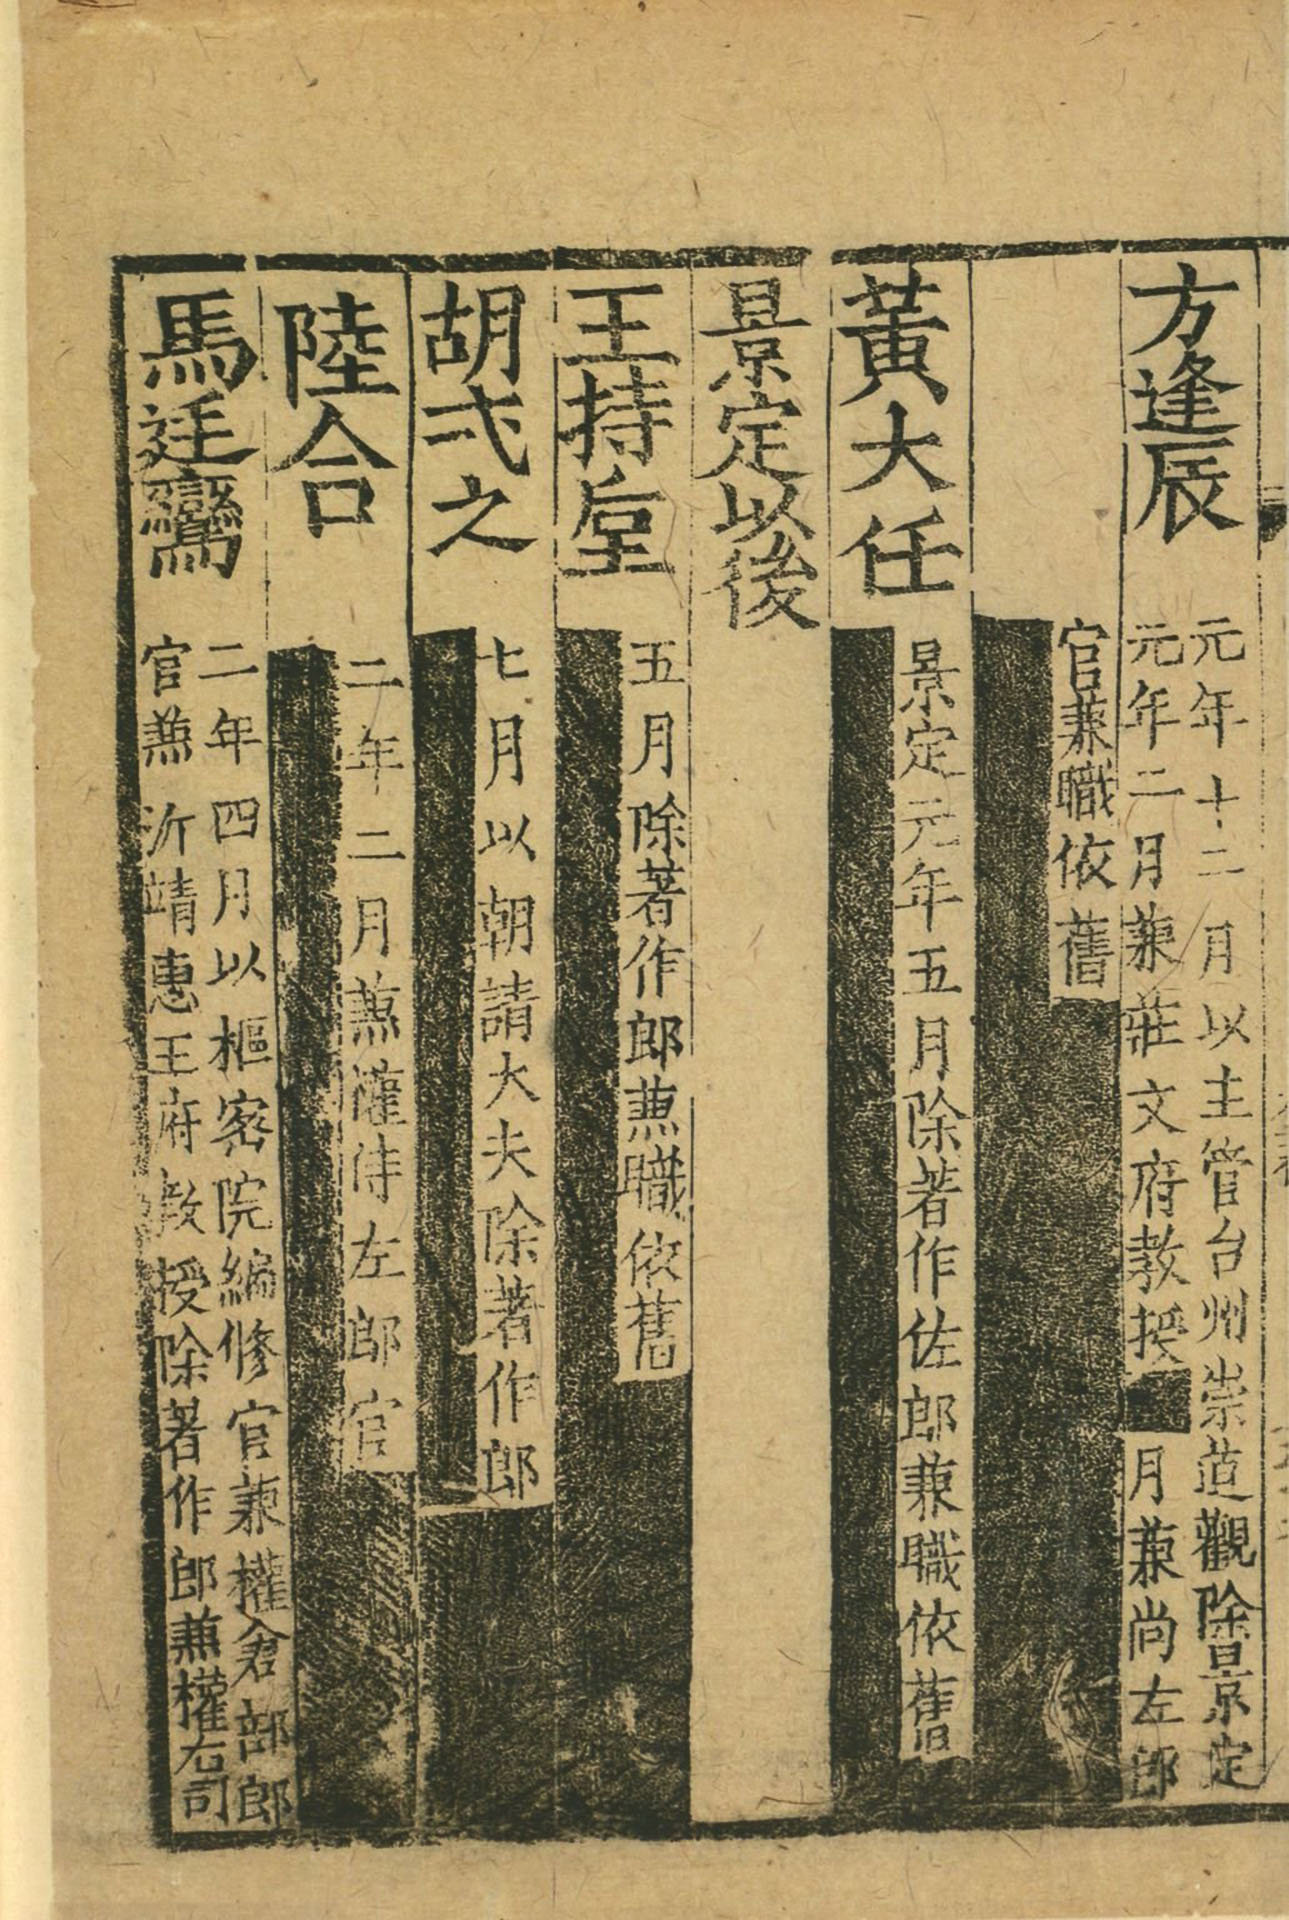 方逢辰
元年十二月以主管台州崇道觀除景定
元年二月兼莊文府教授
月兼尚左郎
官兼職依舊
黃大任
景定元年五月除著作佐郎兼職依舊
景定以後
王持垕
五月除著作郎兼職依舊
胡弍之
七月以朝請大夫除著作郎
陸合
二年二月兼權侍左郎官
馬廷鸞
二年四月以樞密院編修官兼權倉部郎
官兼沂靖惠王府教授除著作郎兼權右司